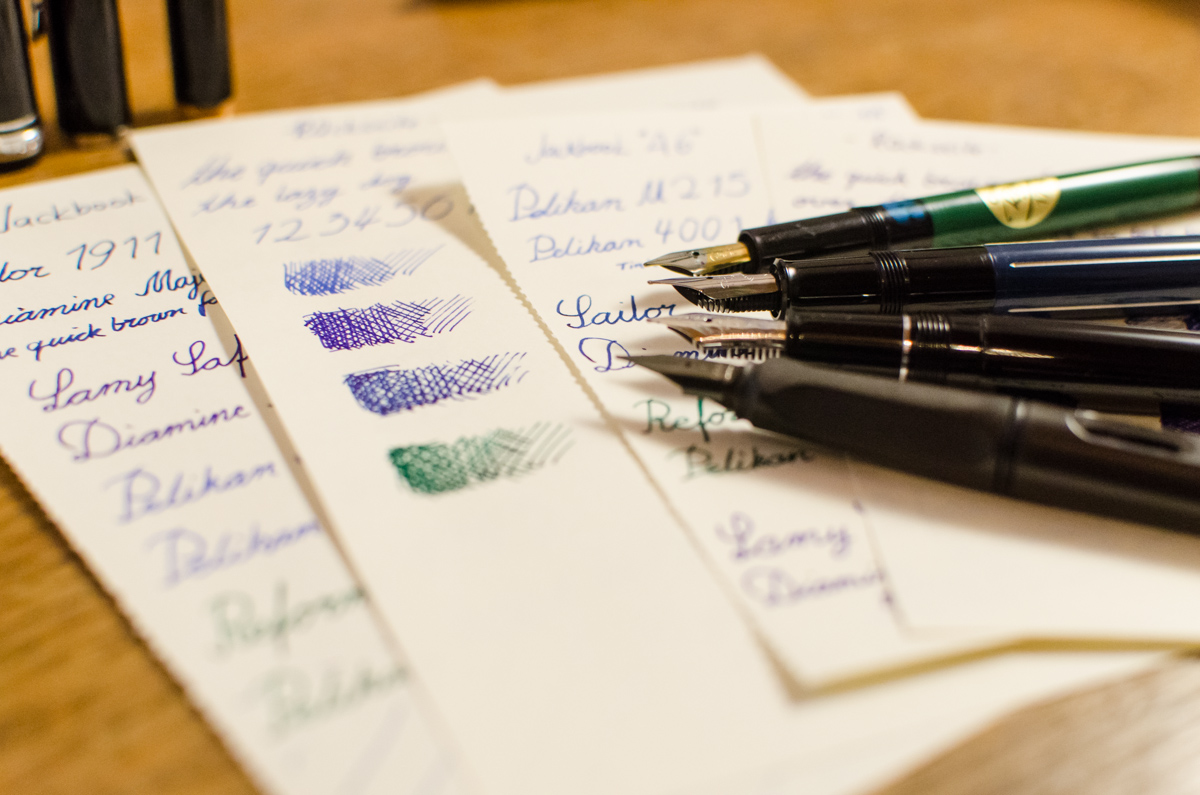 Jackbook
lor 1911
iamine Maj
e quick brown f
Lamy Saf
Diamine
Pelikan
Pelikan
Reform
Pelika
the quick brown
the lazy dog
1 2 3 4 5 6
"46"
Pelikan M215
Pelikan 4001
Sailor
Refor
Pelikan
Lamy
Diamin
the quick brown